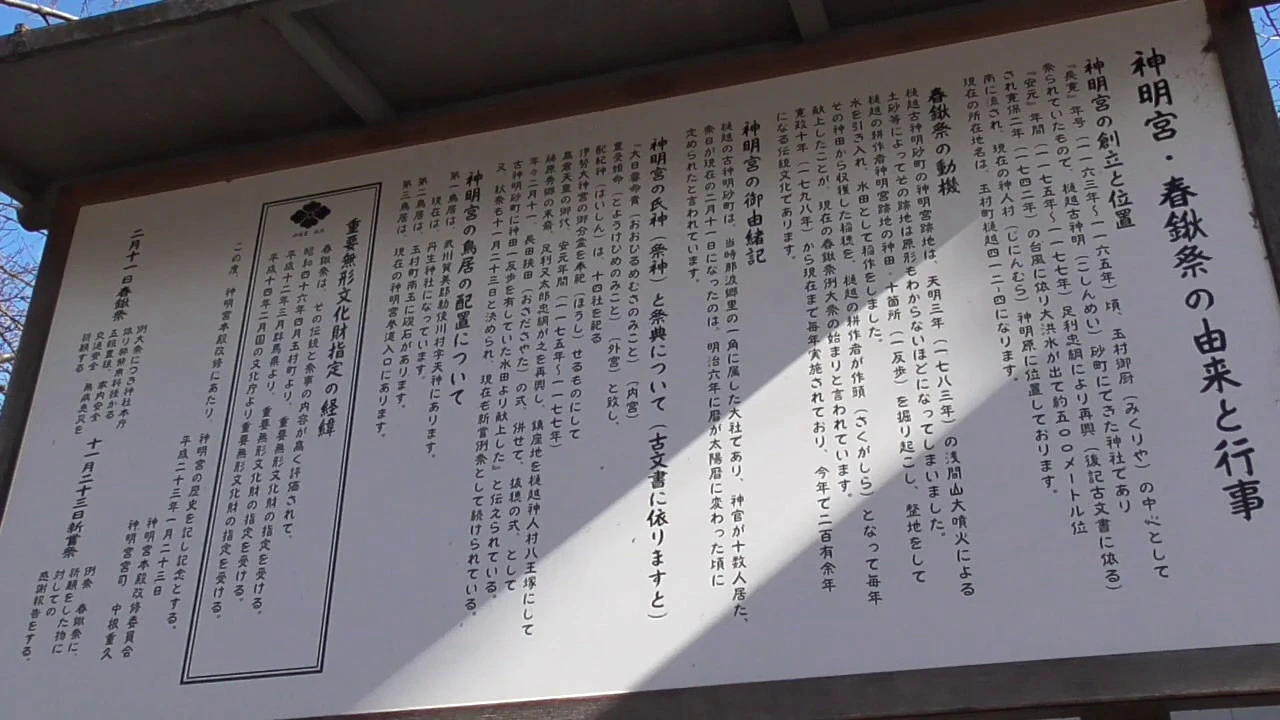 神明宮・春鍬祭の由来と行事
神明宮の創立と位置
『長寛』年号(一一六三年〜一一六五年)頃、玉村御厨(みくりや)の中心として
祭られていたもので、樋越古神明(こしんめい)砂町にてきた神社であり
『安元』年間(一一七五年〜一一七七年)足利忠綱により再興(後記古文書に依る)
され寛保二年(一七四二年)の台風に依り大洪水が出て約五〇〇メートル位
南に流され、現在の神人村(じにんむら)神明原に位置しております。
現在の所在地名は、玉村町樋越四一二-四になります。
春鍬祭の動機
樋越古神明砂町の神明宮跡地は、天明三年(一七八三年)の浅間山大噴火による
土砂等によってその跡地は原形もわからないほどになってしまいました。
樋越の耕作者神明宮跡地の神田、十箇所(一反歩)を掘り起こし、整地をして
水を引き入れ、水田として稲作をしました。
その神田から収穫した稲穂を、樋越の耕作者が作頭(さくがしら)となって毎年
献上したことが、現在の春鍬祭例大祭の始まりと言われています。
寛政十年(一七九八年)から現在まで毎年実施されており、今年で二百有余年
になる伝統文化であります。
神明宮の御由緒記
樋越の古神明砂町は、当時那波郷里の一角に属した大社であり、神官が十数人居た、
祭日が現在の二月十一日になったのは、明治六年に暦が太陽暦に変わった頃に
定められたと言われています。
神明宮の氏神(祭神)と祭典について(古文書に依りますと)
『大日孁命貴(おおひるめむさのみこと)(内宮)
豊受姫命(とようけひめのみこと)(外宮)と致し、
配祀神(はいししん)は、十四社を祀る
伊勢大神宮の御分霊を奉祀(ほうし)せるものにして
高倉天皇の御代、安元年間(一一七五年〜一一七七年)
藤原秀郷の末裔、足利又太郎忠綱が之を再興し、鎮座地を樋越神人村八王塚にして
年々二月十一、長田狭田(おさださやた)の式、併せて、抜穂の式、として
古神明砂町に神田一反歩を有していた水田より献上した』と伝えられている。
又、秋祭も十一月二十三日と決められ、現在も新嘗例祭として続けられている。
神明宮の鳥居の配置について
第一鳥居は、武川賀美郡勅使川村字天神にあります。
現在は、丹生神社になっています。
第二鳥居は、玉村町南玉に礎石があります。
第三鳥居は、現在の神明宮参道入口にあります。
重要無形文化財指定の経緯
春鍬祭は、その伝統と祭事の内容が高く評価されて、
昭和四十六年四月玉村町より、重要無形文化財の指定を受ける。
平成十二年三月群馬県より、重要無形文化財の指定を受ける。
平成十四年二月国の文化庁より重要無形文化財の指定を受ける。
この度、神明宮本殿改修にあたり、
神明宮の歴史を記し記念とする。
平成二十三年一月二十三日
神明宮本殿改修委員会
神明宮宮司 中根重久
二月十一日春鍬祭
例大祭につき神社本庁
依り幣帛料供せる
五穀豊穣、家内安全
交通安全 無病息災を
祈願する
十一月二十三日新嘗祭
例祭 春鍬祭に、
祈願をした物に
対しての
感謝報告をする。